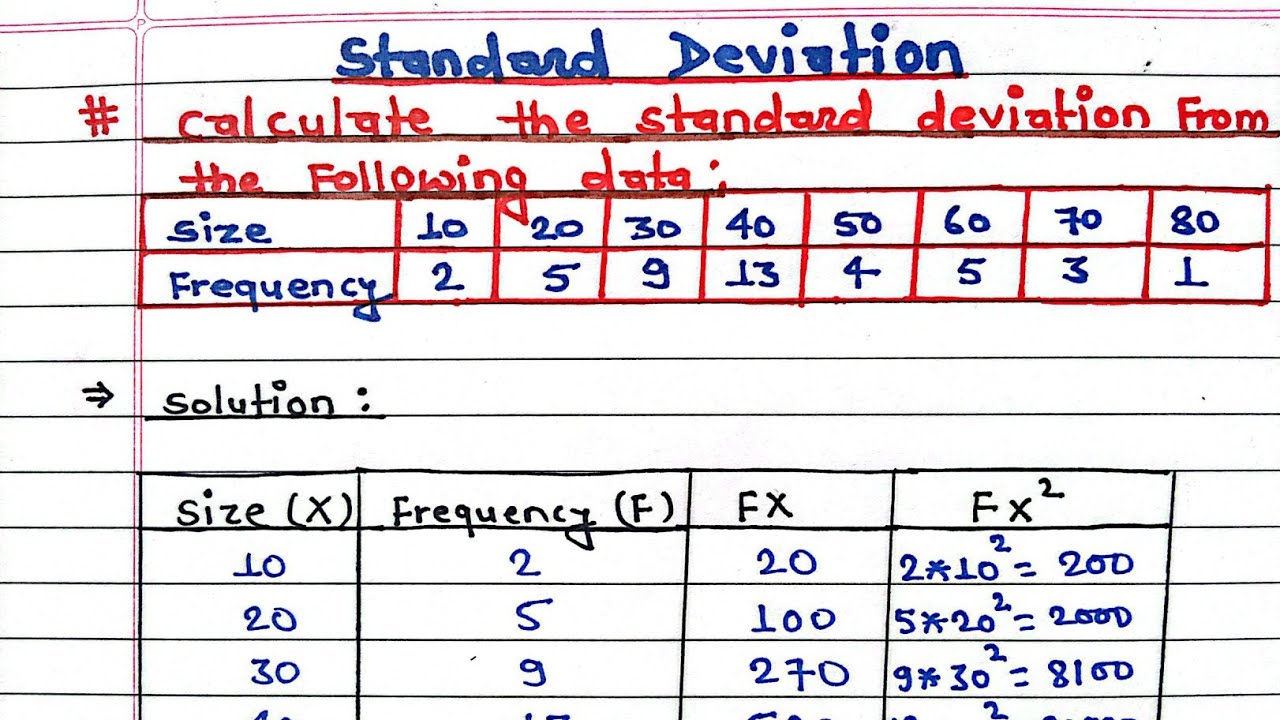 Standard Deviation
# Calculate the standard deviation From
the Following data:
Size 10 20 30 40 50 60 70 80
Frequency 2 5 9 13 4 5 3 1
⇒ Solution:
Size (X) Frequency (F) FX Fx²
10 2 20 2*10²= 200
20 5 100 5*20²= 2000
30 9 270 9*30²= 8100